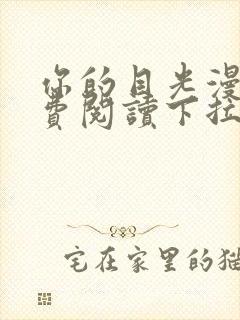 你的目光漫
费阅讀下拉
宅在家里的猫